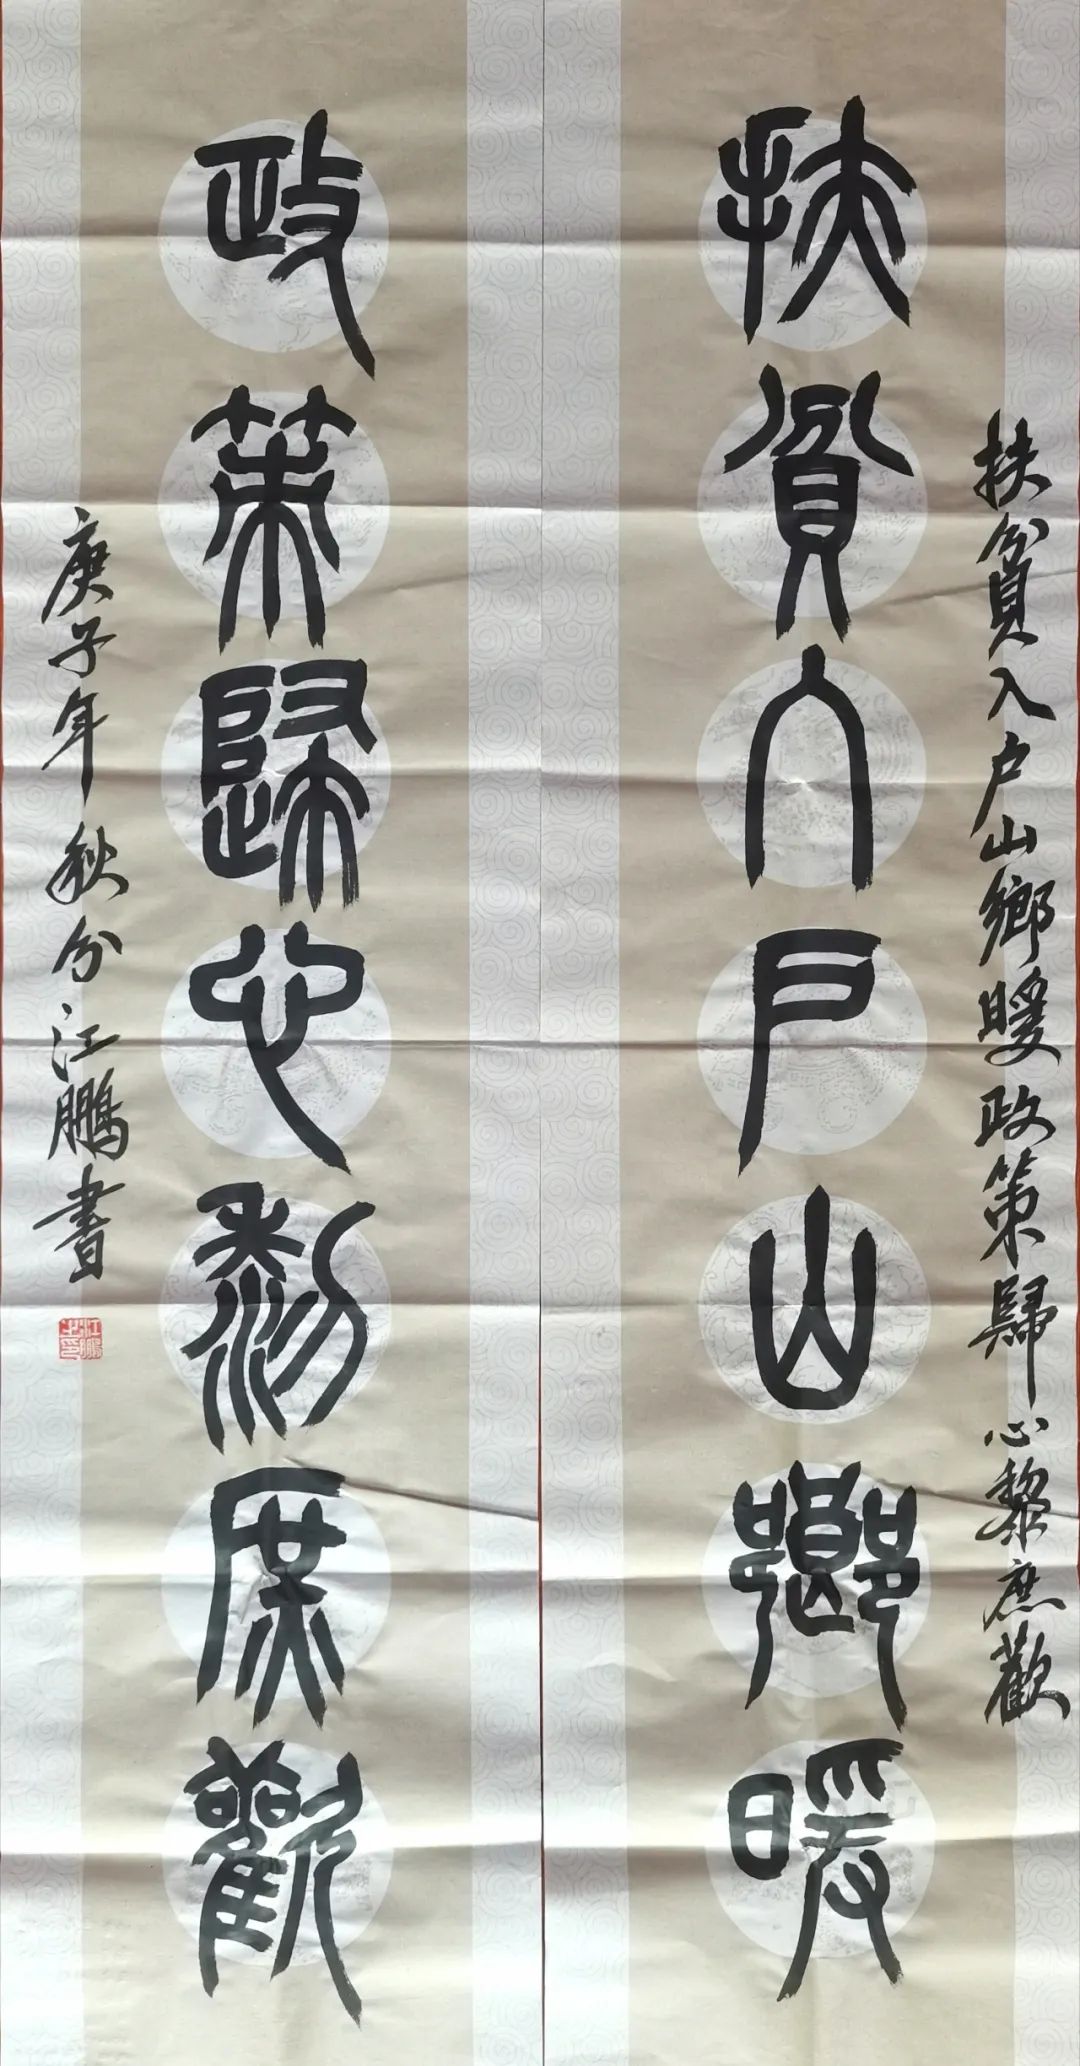 扶貧入户山鄉暖政策歸心黎庶歡
扶貧入户山鄉暖
政策歸心黎庶歡
庚子年秋分江鵬書
江鵬之印